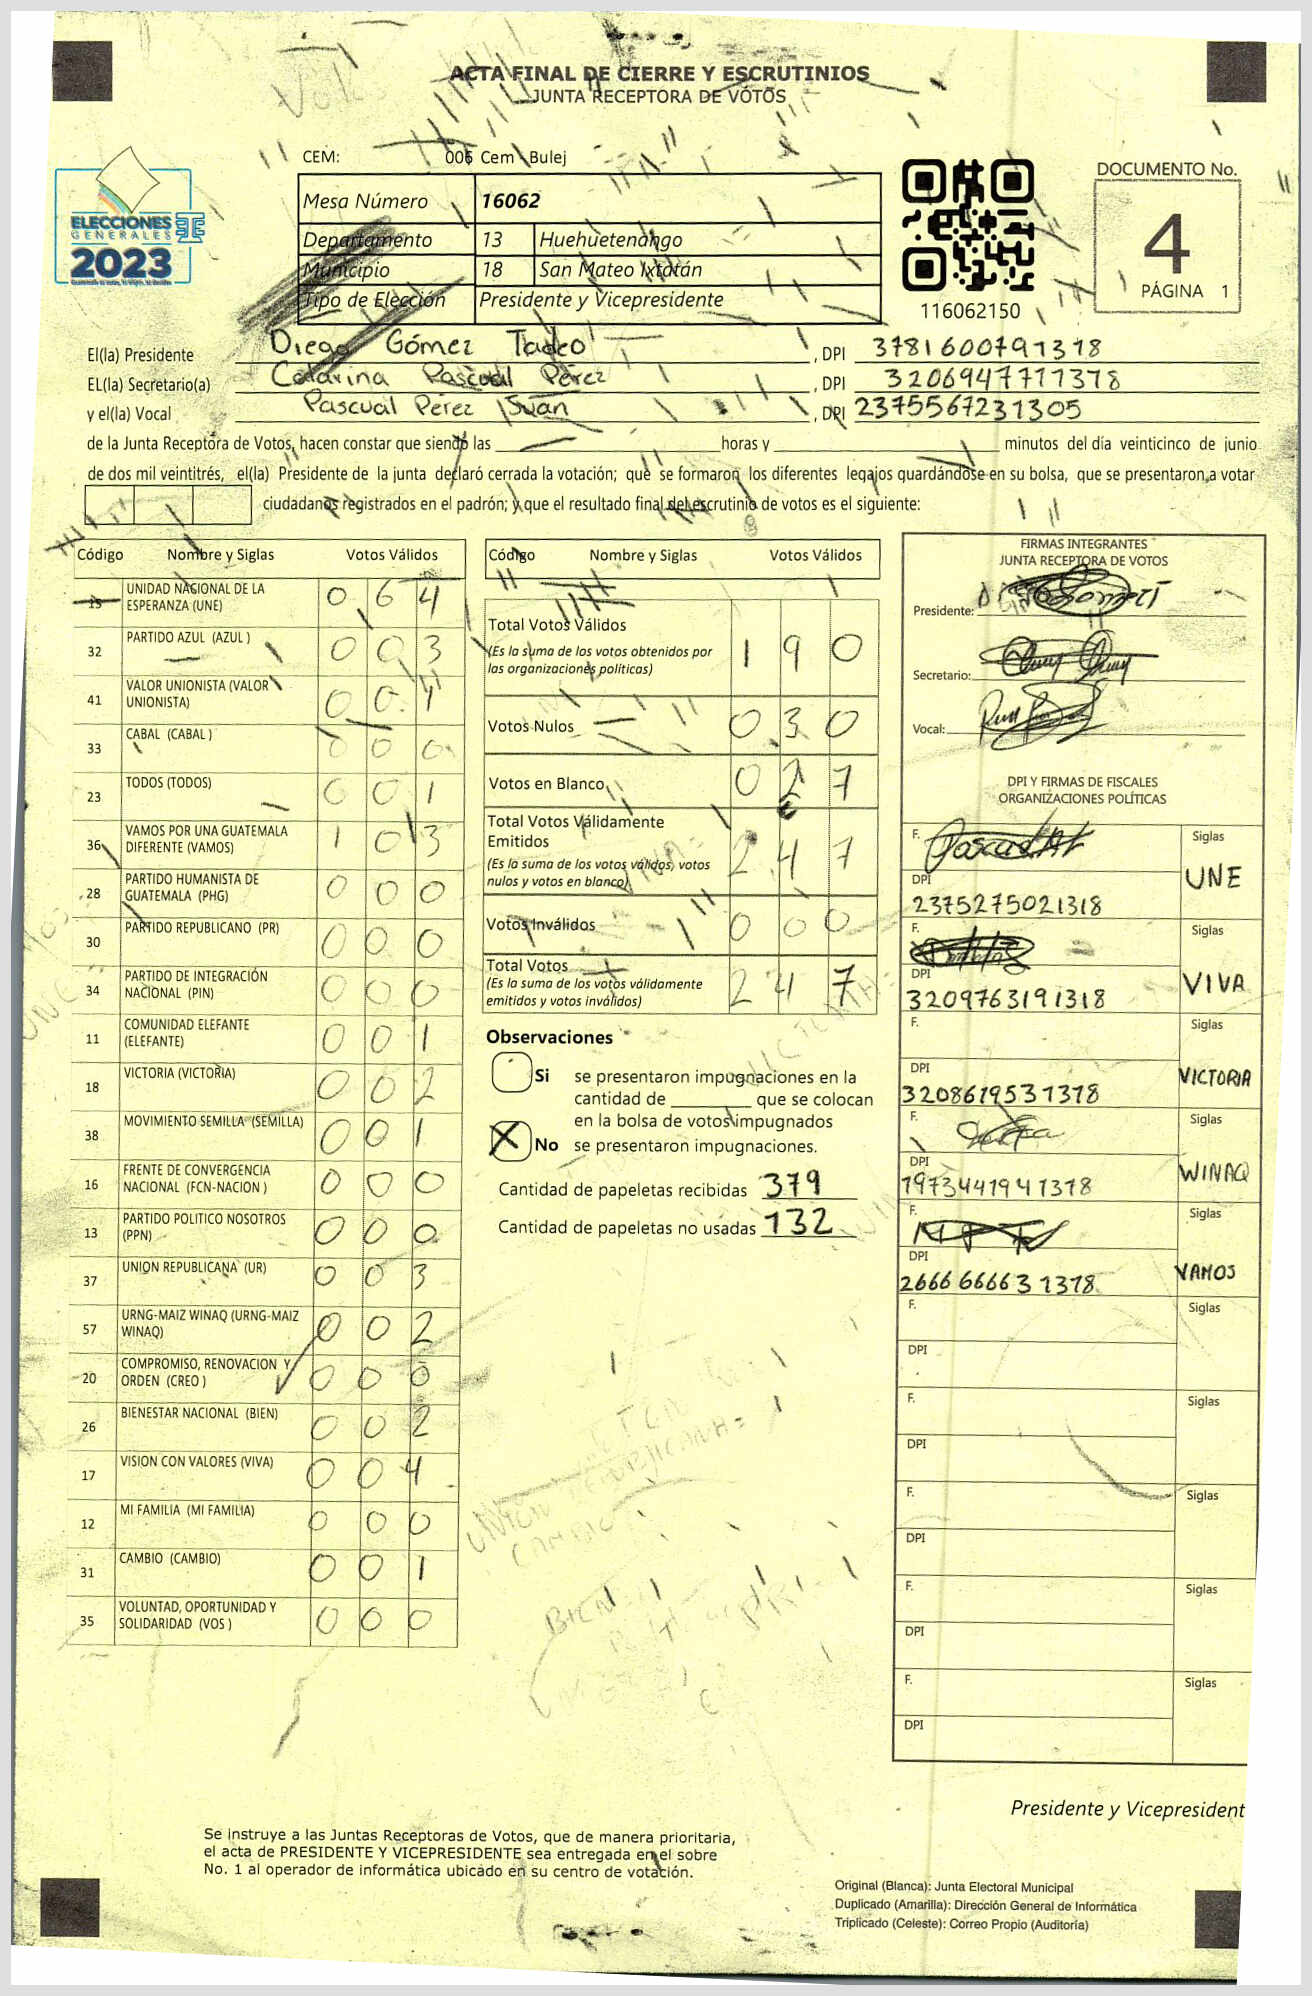 ACTA FINAL DE CIERRE Y ESCRUTINIOS
JUNTA RECEPTORA DE VOTOS
CEM: 006 Cem Bulej
ELECCIONES
GENERALES
2023
Mesa Número 16062
Departamento 13 Huehuetenango
Municipio 18 San Mateo Ixtatán
Tipo de Elección Presidente y Vicepresidente
116062150
DOCUMENTO No.
4
PÁGINA 1
El(la) Presidente Diego Gómez Tadeo, DPI 3781600791318
EL(la) Secretario(a) Catarina Pascual Pérez, DPI 3206947771318
y el(la) Vocal Pascual Pérez Juan, DPI 2375567231305
de la Junta Receptora de Votos, hacen constar que siendo las horas y minutos del día veinticinco de junio
de dos mil veintitrés, el(la) Presidente de la junta declaró cerrada la votación; que se formaron los diferentes legajos guardándose en su bolsa, que se presentaron a votar
ciudadanos registrados en el padrón; y que el resultado final del escrutinio de votos es el siguiente:
Código Nombre y Siglas Votos Válidos
15 UNIDAD NACIONAL DE LA ESPERANZA (UNE) 0 6 4
32 PARTIDO AZUL (AZUL ) 0 0 3
41 VALOR UNIONISTA (VALOR UNIONISTA) 0 0 4
33 CABAL (CABAL ) 0 0 0
23 TODOS (TODOS) 0 0 1
36 VAMOS POR UNA GUATEMALA DIFERENTE (VAMOS) 1 0 3
28 PARTIDO HUMANISTA DE GUATEMALA (PHG) 0 0 0
30 PARTIDO REPUBLICANO (PR) 0 0 0
34 PARTIDO DE INTEGRACIÓN NACIONAL (PIN) 0 0 0
11 COMUNIDAD ELEFANTE (ELEFANTE) 0 0 1
18 VICTORIA (VICTORIA) 0 0 2
38 MOVIMIENTO SEMILLA (SEMILLA) 0 0 1
16 FRENTE DE CONVERGENCIA NACIONAL (FCN-NACION ) 0 0 0
13 PARTIDO POLITICO NOSOTROS (PPN) 0 0 0
37 UNION REPUBLICANA (UR) 0 0 3
57 URNG-MAIZ WINAQ (URNG-MAIZ WINAQ) 0 0 2
20 COMPROMISO, RENOVACION Y ORDEN (CREO ) 0 0 0
26 BIENESTAR NACIONAL (BIEN) 0 0 2
17 VISION CON VALORES (VIVA) 0 0 4
12 MI FAMILIA (MI FAMILIA) 0 0 0
31 CAMBIO (CAMBIO) 0 0 1
35 VOLUNTAD, OPORTUNIDAD Y SOLIDARIDAD (VOS ) 0 0 0
Código Nombre y Siglas Votos Válidos
Total Votos Válidos 1 9 0
(Es la suma de los votos obtenidos por
las organizaciones políticas)
Votos Nulos 0 3 0
Votos en Blanco 0 2 7
Total Votos Válidamente
Emitidos 2 4 7
(Es la suma de los votos válidos, votos
nulos y votos en blanco)
Votos Inválidos 0 0 0
Total Votos 2 4 7
(Es la suma de los votos válidamente
emitidos y votos inválidos)
Observaciones
Si se presentaron impugnaciones en la
cantidad de que se colocan
en la bolsa de votos impugnados
X No se presentaron impugnaciones.
Cantidad de papeletas recibidas 379
Cantidad de papeletas no usadas 132
UNION REPUBLICANA =
CAMBIO
BIEN
FIRMAS INTEGRANTES
JUNTA RECEPTORA DE VOTOS
Presidente:
Secretario:
Vocal:
DPI Y FIRMAS DE FISCALES
ORGANIZACIONES POLÍTICAS
F. Siglas
DPI UNE
2375275021318
F. Siglas
DPI VIVA
3209763191318
F. Siglas
DPI VICTORIA
3208619531318
F. Siglas
DPI WINAQ
1973441941318
F. Siglas
DPI VAMOS
2666666631318
F. Siglas
DPI
F. Siglas
DPI
F. Siglas
DPI
F. Siglas
DPI
F. Siglas
DPI
Presidente y Vicepresident
Se instruye a las Juntas Receptoras de Votos, que de manera prioritaria,
el acta de PRESIDENTE Y VICEPRESIDENTE sea entregada en el sobre
No. 1 al operador de informática ubicado en su centro de votación.
Original (Blanca): Junta Electoral Municipal
Duplicado (Amarilla): Dirección General de Informática
Triplicado (Celeste): Correo Propio (Auditoría)